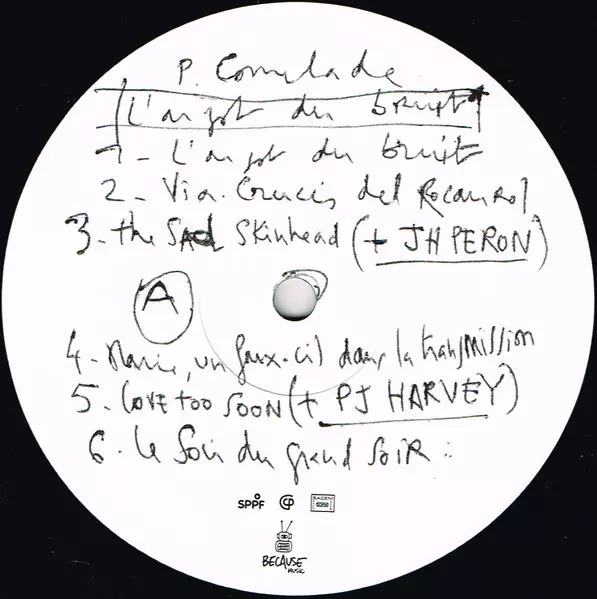 P. Comelade
L'argot du bruit
1 - L'argot du bruit
2 - Via Crucis del Rocanrol
3 - the SAD Skinhead (+ JH PERON)
A
4 - Marie, un faux-cil dans la transmission
5. LOVE TOO SOON (+ PJ HARVEY)
6 - Le Soir du grand SOIR
SPPF
SACEM
BECAUSE
MUSIC